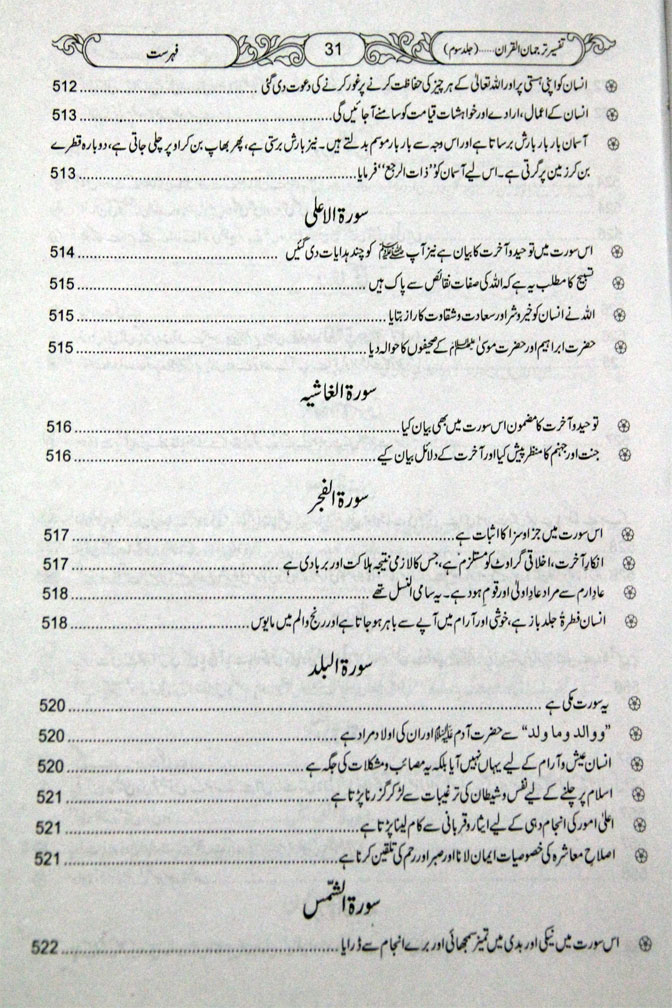 تفسیر ترجمان القرآن......(جلد سوم) 31 فہرست
انسان کو اپنی ہستی پر اور اللہ تعالیٰ کے ہر چیز کی حفاظت کرنے پر غور کرنے کی دعوت دی گئی ........ 512
انسان کے اعمال، ارادے اور خواہشات قیامت کو سامنے آجائیں گی ........ 513
آسمان بار بار بارش برساتا ہے اور اس وجہ سے بار بار موسم بدلتے ہیں۔ نیز بارش برستی ہے، پھر بھاپ بن کر اوپر چلی جاتی ہے، دوبارہ قطرے
بن کر زمین پر گرتی ہے۔ اس لیے آسمان کو "ذات الرجع" فرمایا ........ 513
سورۃ الاعلیٰ
اس سورت میں توحید و آخرت کا بیان ہے نیز آپ ﷺ کو چند ہدایات دی گئیں ........ 514
تسبیح کا مطلب یہ ہے کہ اللہ کی صفات نقائص سے پاک ہیں ........ 515
اللہ نے انسان کو خیر و شر اور سعادت و شقاوت کا راز بتایا ........ 515
حضرت ابراہیم اور حضرت موسیٰ علیہما السلام کے صحیفوں کا حوالہ دیا ........ 515
سورۃ الغاشیہ
توحید و آخرت کا مضمون اس سورت میں بھی بیان کیا ........ 516
جنت اور جہنم کا منظر پیش کیا اور آخرت کے دلائل بیان کیے ........ 516
سورۃ الفجر
اس سورت میں جزا و سزا کا اثبات ہے ........ 517
انکار آخرت، اخلاقی گراوٹ کو مستلزم ہے، جس کا لازمی نتیجہ ہلاکت اور بربادی ہے ........ 517
عاد ارم سے مراد عاد اولیٰ اور قوم ہود ہے۔ یہ سامی النسل تھے ........ 518
انسان فطرۃً جلد باز ہے، خوشی اور آرام میں آپے سے باہر ہو جاتا ہے اور رنج و الم میں مایوس ........ 518
سورۃ البلد
یہ سورت مکی ہے ........ 520
"ووالد وما ولد" سے حضرت آدم علیہ السلام اور ان کی اولاد مراد ہے ........ 520
انسان عیش و آرام کے لیے یہاں نہیں آیا بلکہ یہ مصائب و مشکلات کی جگہ ہے ........ 520
اسلام پر چلنے کے لیے نفس و شیطان کی ترغیبات سے لڑ کر گزرنا پڑتا ہے ........ 521
اعلیٰ امور کی انجام دہی کے لیے ایثار و قربانی سے کام لینا پڑتا ہے ........ 521
اصلاح معاشرہ کی خصوصیات ایمان لانا اور صبر اور رحم کی تلقین کرنا ہے ........ 521
سورۃ الشمس
اس سورت میں نیکی اور بدی میں تمیز سمجھائی اور برے انجام سے ڈرایا ........ 522